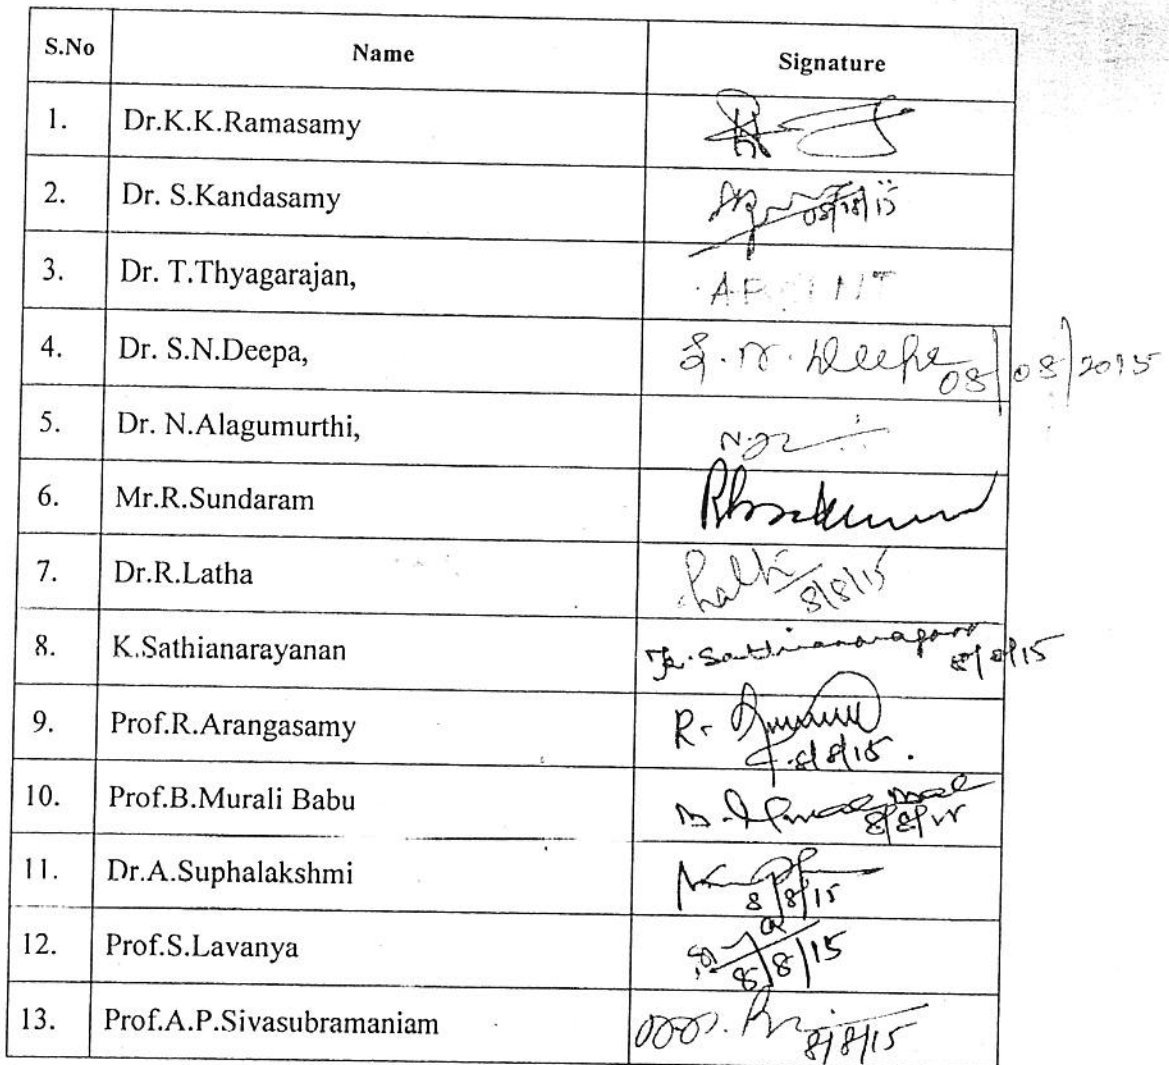 S.No Name Signature
1. Dr.K.K.Ramasamy
2. Dr. S.Kandasamy 08/08/15
3. Dr. T.Thyagarajan, ABSENT
4. Dr. S.N.Deepa, S.N. Deepa 08/08/2015
5. Dr. N.Alagumurthi,
6. Mr.R.Sundaram
7. Dr.R.Latha Latha 8/8/15
8. K.Sathianarayanan K. Sathianarayanan 8/8/15
9. Prof.R.Arangasamy R. 8/8/15.
10. Prof.B.Murali Babu 8/8/15
11. Dr.A.Suphalakshmi 8/8/15
12. Prof.S.Lavanya 8/8/15
13. Prof.A.P.Sivasubramaniam 8/8/15